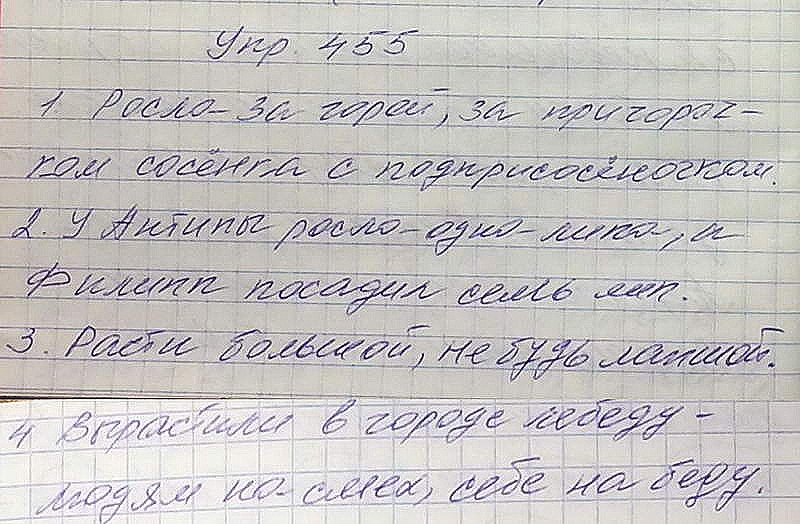 Упр. 455
1. Росла за горой, за пригороч-
ком сосёнка с подприсосёночком.
2. У Антипы росла одна липа, и
Филипп посадил семь лип.
3. Расти большой, не будь лапшой.
4 Вырастили в городе лебеду -
людям на смех, себе на беду.